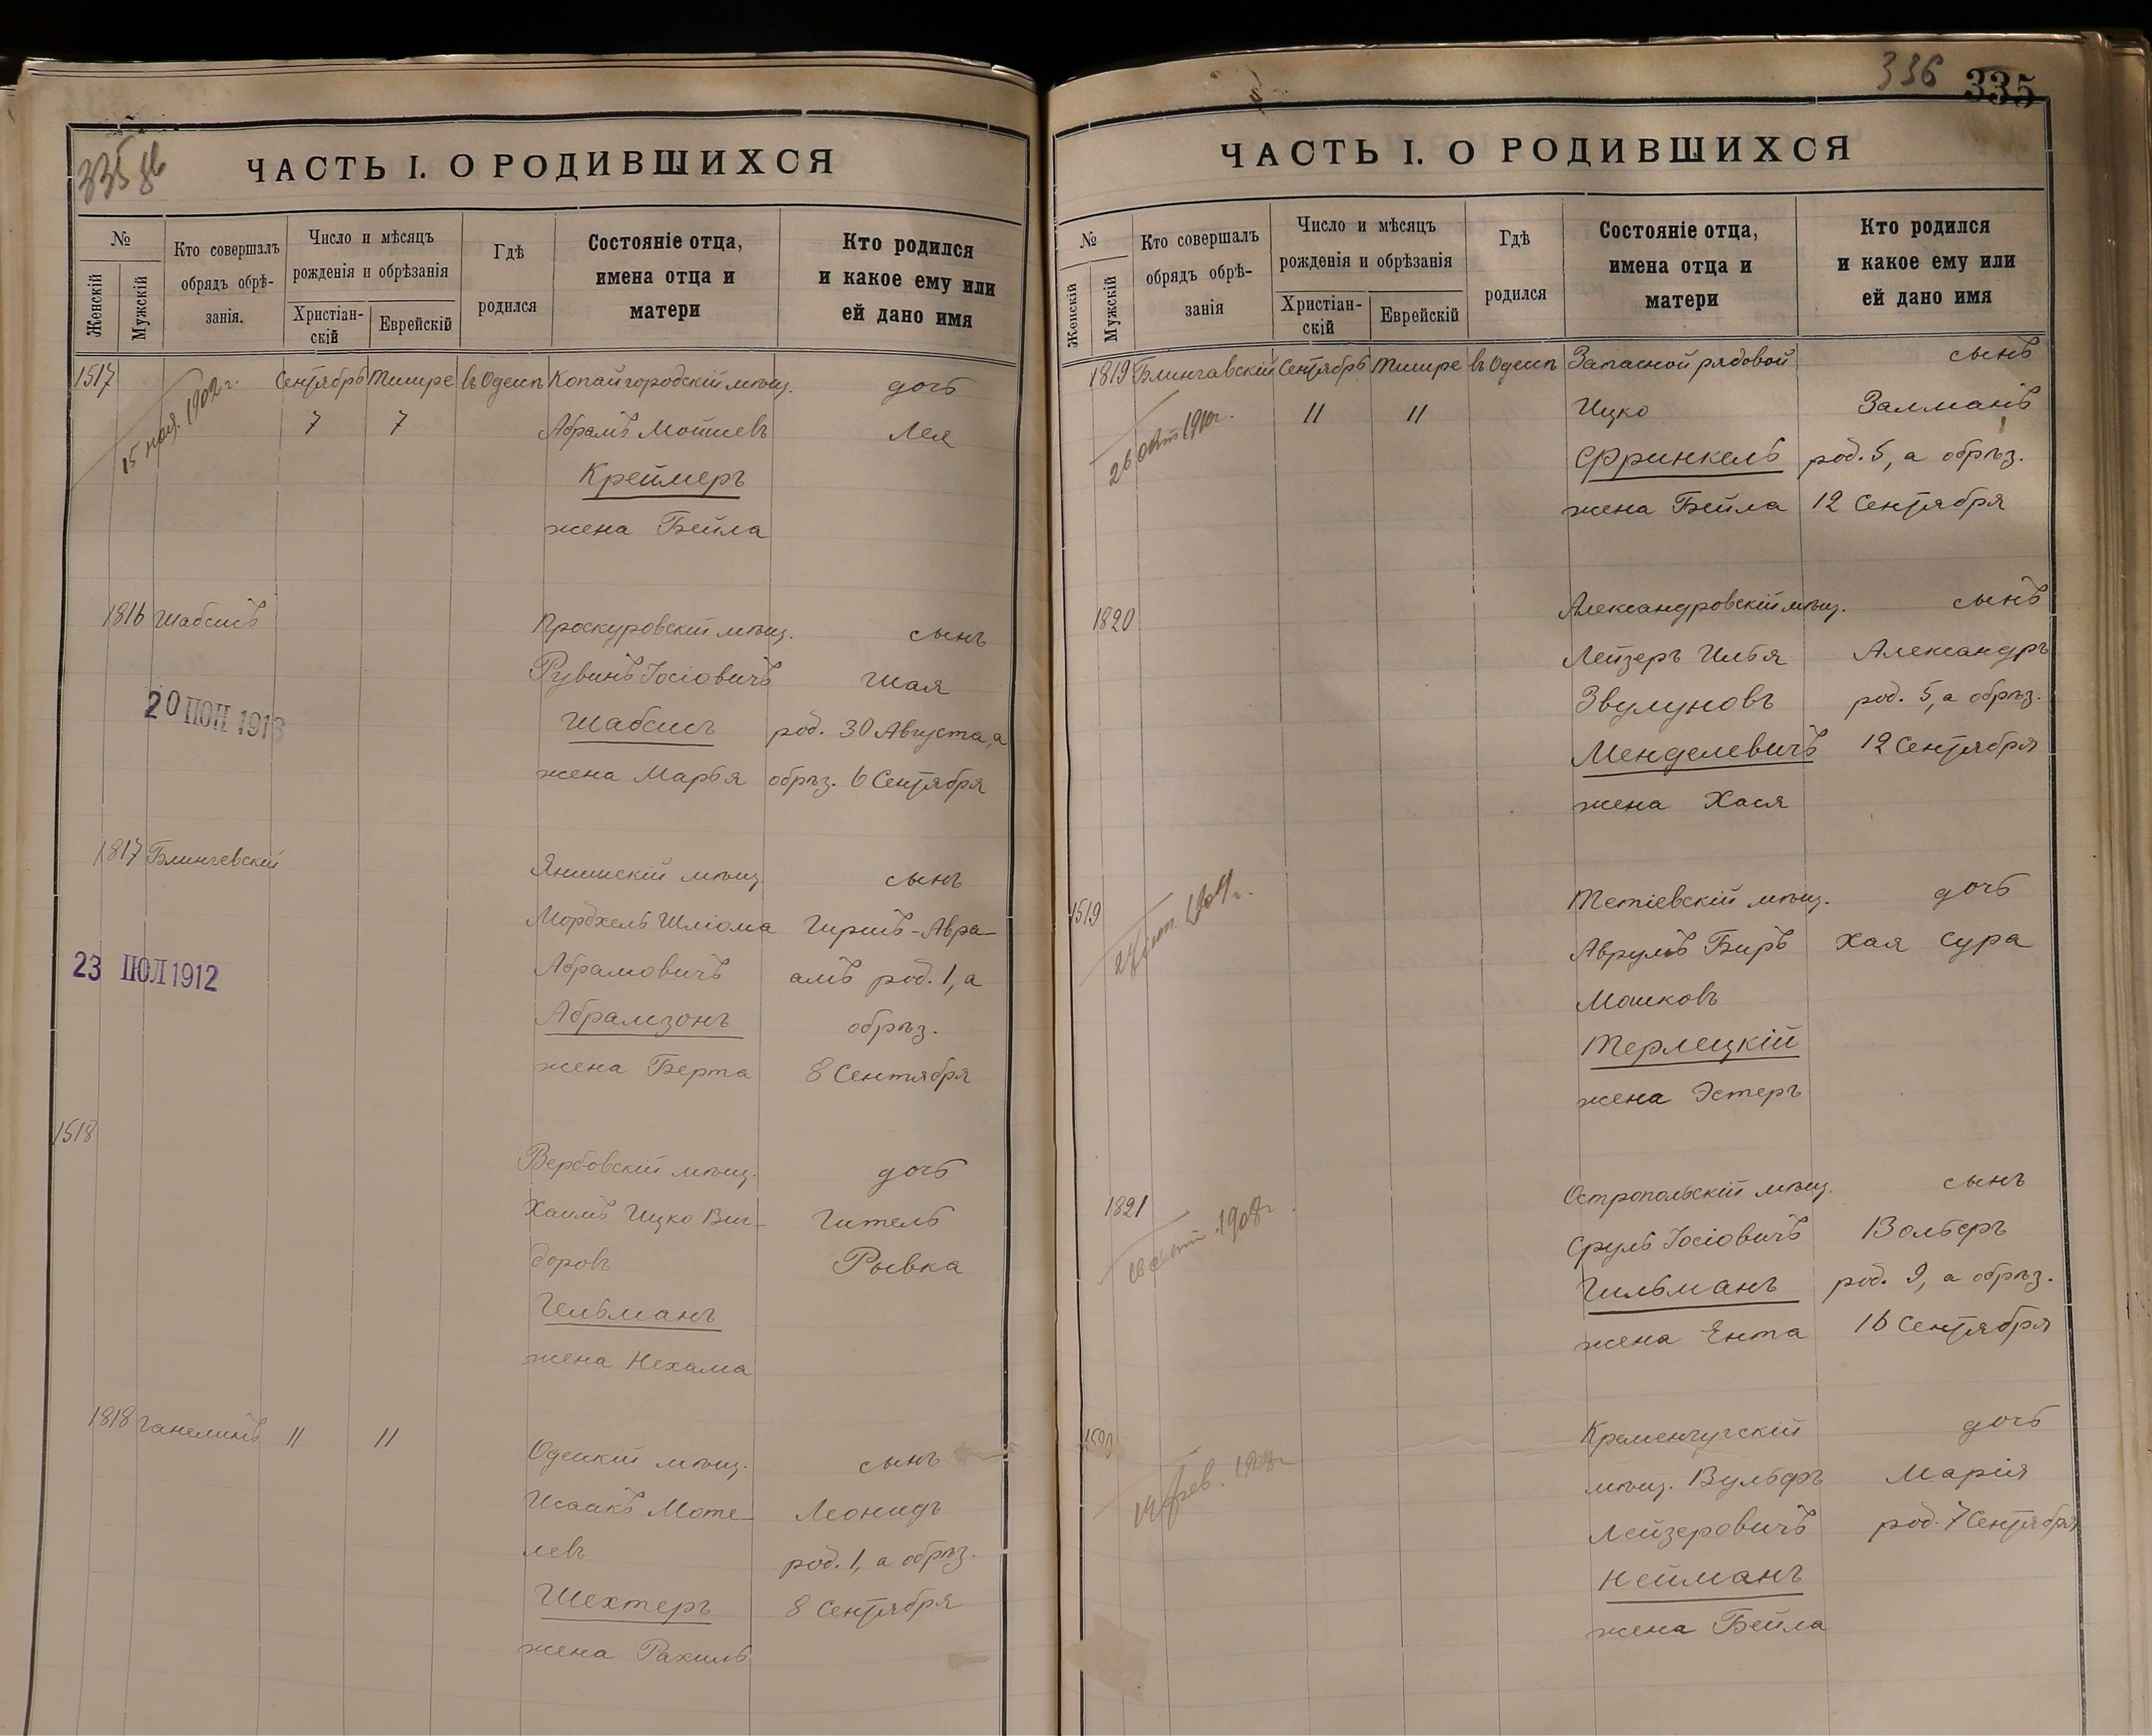 335 об
ЧАСТЬ I. О РОДИВШИХСЯ
№
Женскій
Мужскій
Кто совершалъ
обрядъ обрѣ-
занія.
Число и мѣсяцъ
рожденія и обрѣзанія
Христіан-
скій
Еврейскій
Гдѣ
родился
Состояніе отца,
имена отца и
матери
Кто родился
и какое ему или
ей дано имя
1517 Сентябрь Тишре въ Одессѣ Копайгородскій мѣщ. дочь
15 ноя. 1902 г.
7 7 Абрамъ Мошиевъ Лея
Креймеръ
жена Бейла
1816 Шабсисъ Проскуровскій мѣщ. сынъ
Рувинъ Іосіовичъ Шая
20 1913 Шабсисъ род. 30 Августа, а
жена Марья обрѣз. 6 Сентября
1817 Блинчевскій Янишскій мѣщ. сынъ
Мордхель Шліома Гиршъ-Авра-
23 ІЮЛ 1912 Абрамовичъ амъ род. 1, а
Абрамзонъ обрѣз.
жена Берта 8 Сентября
1518 Вербовскій мѣщ. дочь
Хаимъ Ицко Виг- Гитель
доровъ Рывка
Гельманъ
жена Нехама
1818 Ганелинъ 11 11 Одесскій мѣщ. сынъ
Исаакъ Моте- Леонидъ
левъ род. 1, а обрѣз.
Шехтеръ 8 Сентября
жена Рахиль
336 335
ЧАСТЬ I. О РОДИВШИХСЯ
№
Женскій
Мужскій
Кто совершалъ
обрядъ обрѣ-
занія
Число и мѣсяцъ
рожденія и обрѣзанія
Христіан-
скій
Еврейскій
Гдѣ
родился
Состояніе отца,
имена отца и
матери
Кто родился
и какое ему или
ей дано имя
1819 Сентябрь Тишре въ Одессѣ Запасной рядовой сынъ
26 окт 1910 г. 11 11 Ицко Залманъ
Фринкель род. 5, а обрѣз.
жена Бейла 12 Сентября
1820 Александровскій мѣщ. сынъ
Лейзеръ Илья Александръ
Звулуновъ род. 5, а обрѣз.
Менделевичъ 12 Сентября
жена Хася
1519 Тетіевскій мѣщ. дочь
Аврумъ Беръ Хая Сура
Мошковъ
Терлецкій
жена Эстеръ
1821 Остропольскій мѣщ. сынъ
1908 г. Сруль Іосіовичъ Вольфъ
Гильманъ род. 9, а обрѣз.
жена Ента 16 Сентября
Кременчугскій дочь
14 фев. 1908 г. мѣщ. Вульфъ Марія
Лейзеровичъ род. 7 Сентября
Нейманъ
жена Бейла